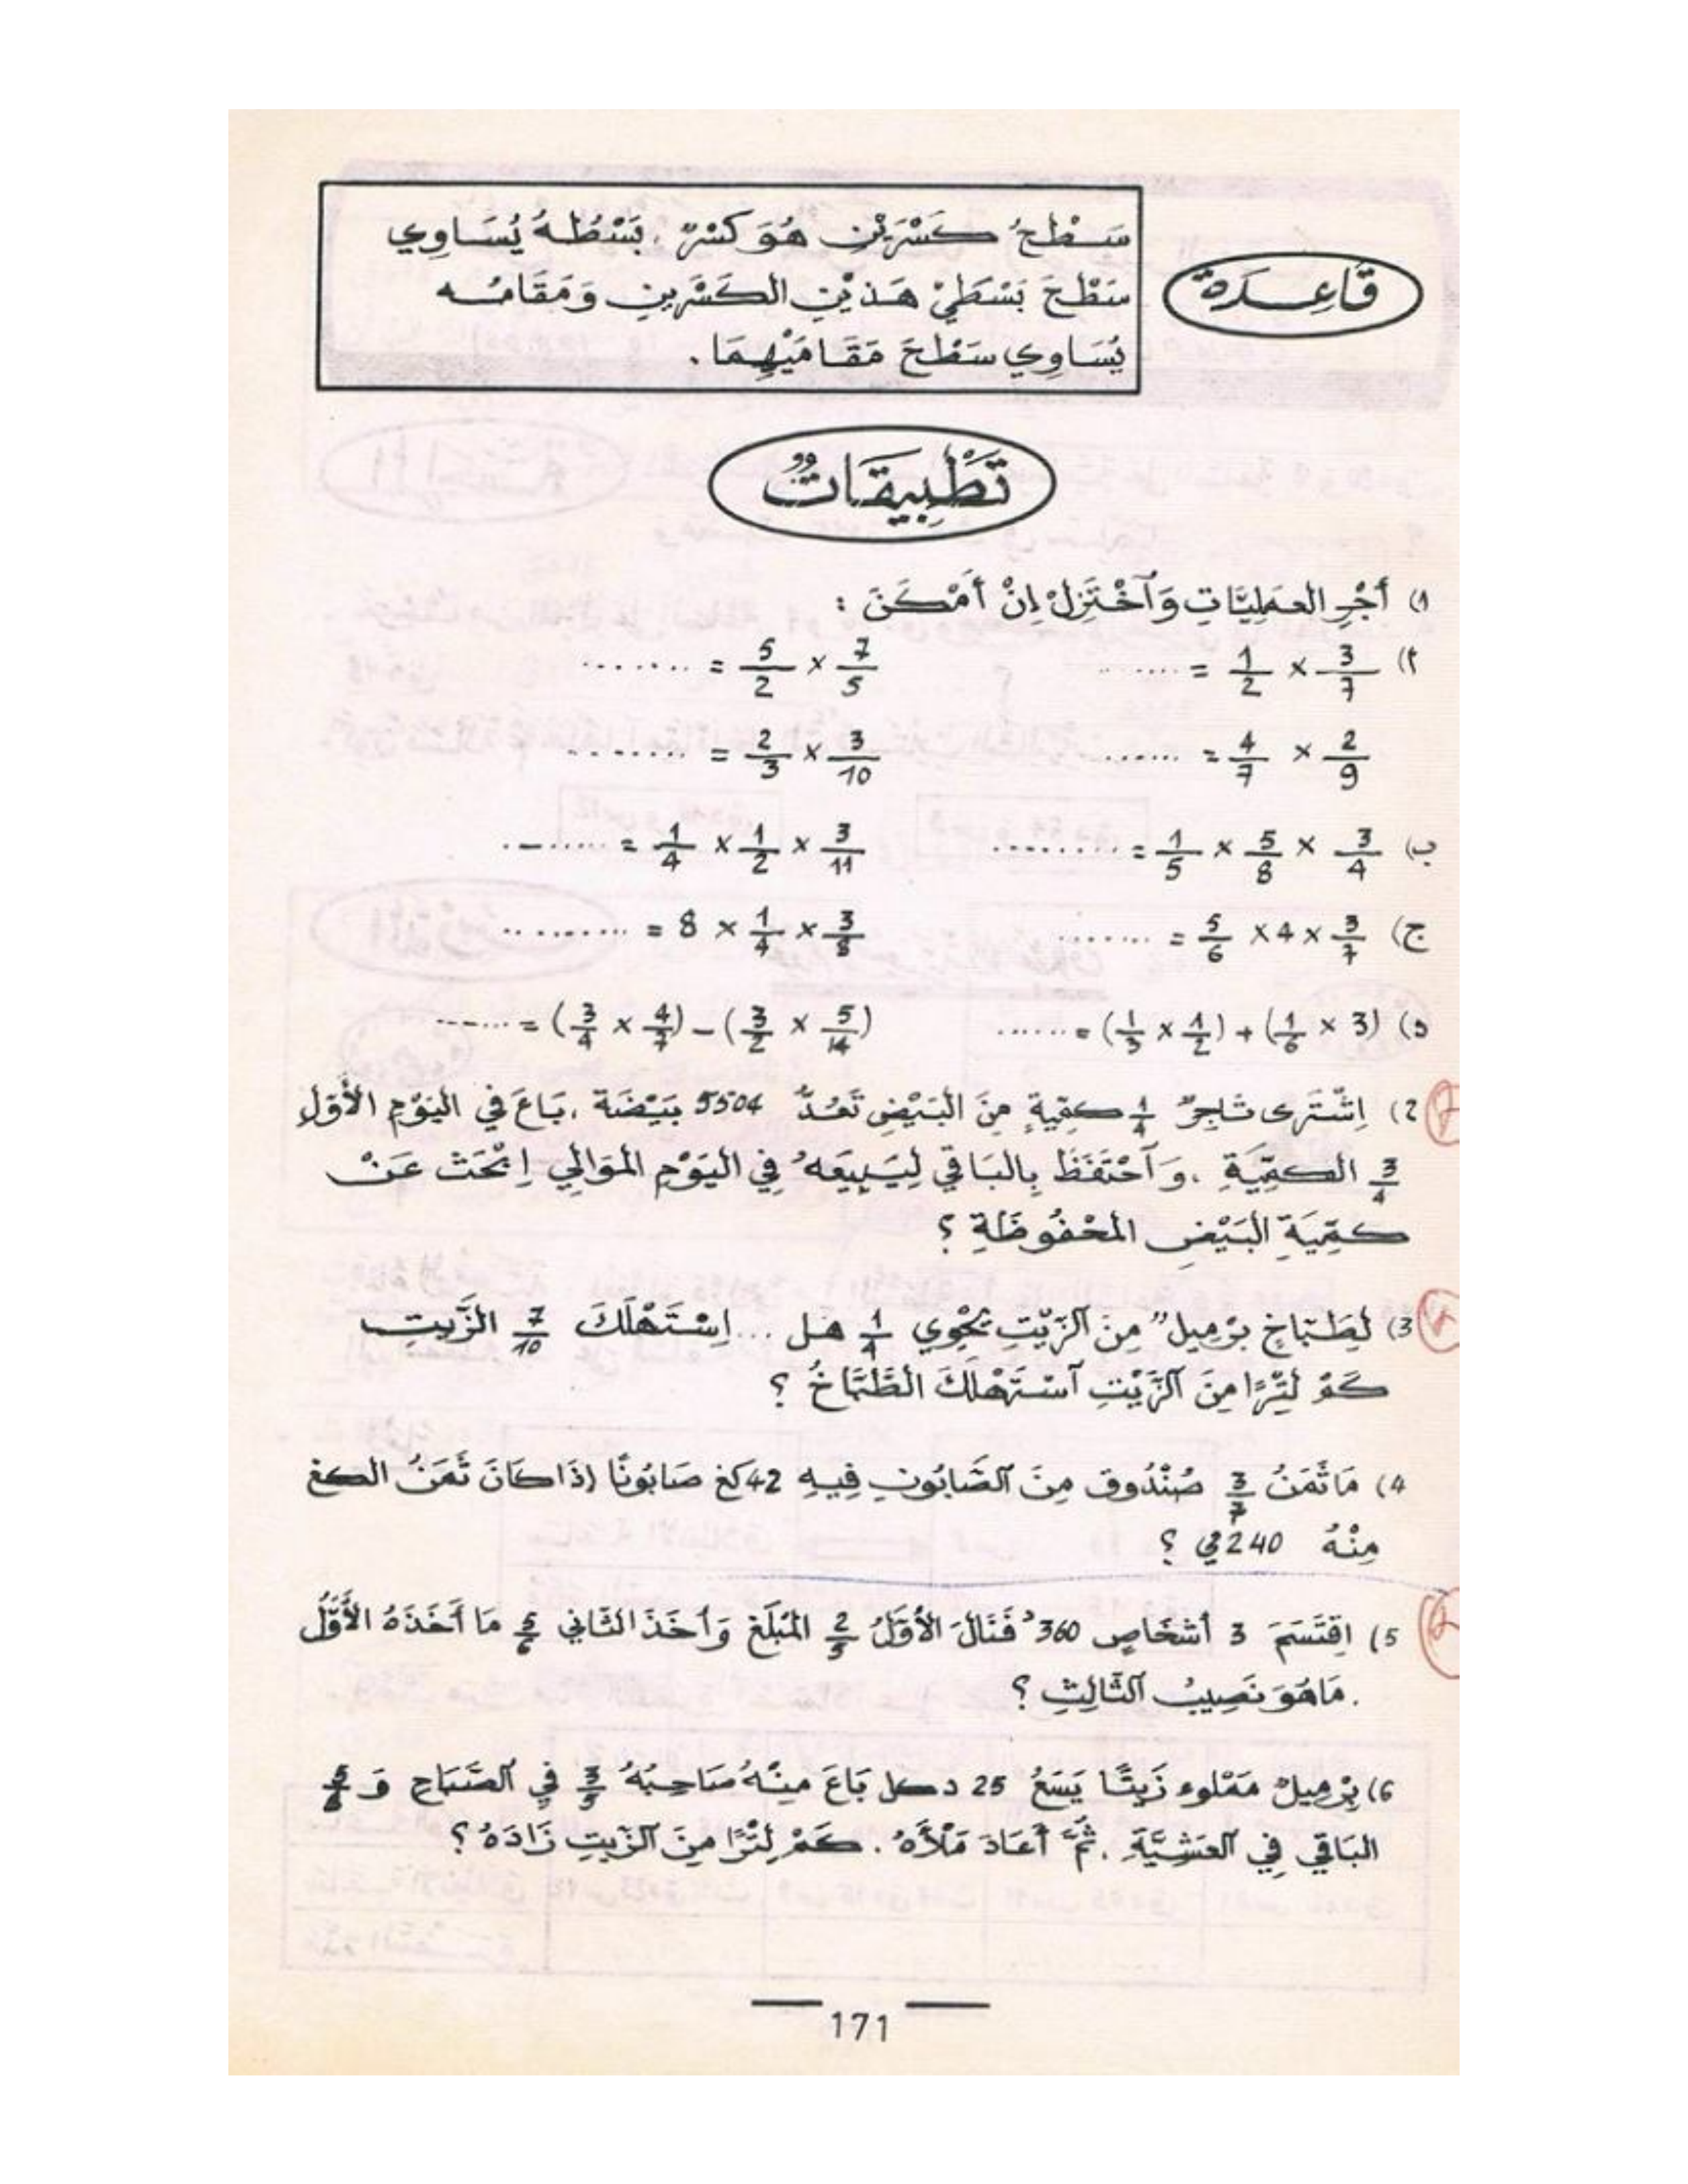 قَاعِدَة
سَطْحُ كَسْرَيْنِ هُوَ كَسْرٌ . بَسْطُهُ يُسَاوِي
سَطْحَ بَسْطَيْ هَذَيْنِ الكَسْرَينِ وَمَقَامُه
يُسَاوِي سَطْحَ مَقَامَيْهِمَا .
تَطْبِيقَاتٌ
1) أَجْرِ العَمَلِيَّاتِ وَآخْتَزِلْ إِنْ أَمْكَنَ :
أ) 3/7 × 1/2 = ........ 7/5 × 5/2 = ........
2/9 × 4/7 = ...... 3/10 × 2/3 = ........
ب) 3/4 × 5/8 × 1/5 = ......... 3/11 × 1/2 × 1/4 = ........
ج) 3/7 × 4 × 5/6 = ........ 3/8 × 1/4 × 8 = ..........
د) (3 × 1/6) + (1/2 × 1/3) = ...... (5/14 × 3/2) – (4/7 × 3/4) = .......
2) اِشْتَرَى تَاجِرٌ 1/4 كمّيةٍ مِنَ البَيْضِ تَعُدُّ 5504 بَيْضَة ، بَاعَ في اليَوْمِ الأَوّل
3/4 الكمِّيَّةِ ، وَآحْتَفَظَ بِالبَاقي لِيَبِيعَهُ فِي اليَوْمِ المُوَالِي اِبْحَث عَنْ
كمِّيَةِ البَيْضِ المَحْفُوظَةِ ؟
3) لِطَبَّاخٍ بَرْمِيلٌ مِنَ آلزَّيْتِ يَحْوِي 1/4 هل ... اِسْتَهْلَكَ 7/10 الزَّيتِ
كَمْ لِتْرًا مِنَ آلزَّيْتِ آسْتَهْلَكَ الطَّبَّاخُ ؟
4) مَا ثَمَنُ 3/7 صُنْدُوق مِنَ آلصَّابُونِ فِيهِ 42 كغ صَابُونًا إِذَا كَانَ ثَمَنُ الكغ
مِنْهُ 240 مي ؟
5) اِقْتَسَمَ 3 أَشْخَاصٍ 360ᵈ فَنَالَ الأَوَّلُ 2/5 المَبْلَغِ وَأَخَذَ الثَّاني 5/6 مَا أَخَذَهُ الأَوَّلُ
. مَاهُوَ نَصِيبُ آلثَّالِثِ ؟
6) بِرْمِيلٌ مَمْلوء زَيتًا يَسَعُ 25 دكل بَاعَ مِنْهُ صَاحِبُهُ 3/5 فِي آلصَّبَاحِ وَ 5/6
البَاقي فِي آلعَشِيَّةِ . ثُمَّ أَعَادَ مَلْأَهُ . كَمْ لِتْرًا مِنَ آلزَّيتِ زَادَهُ ؟
171